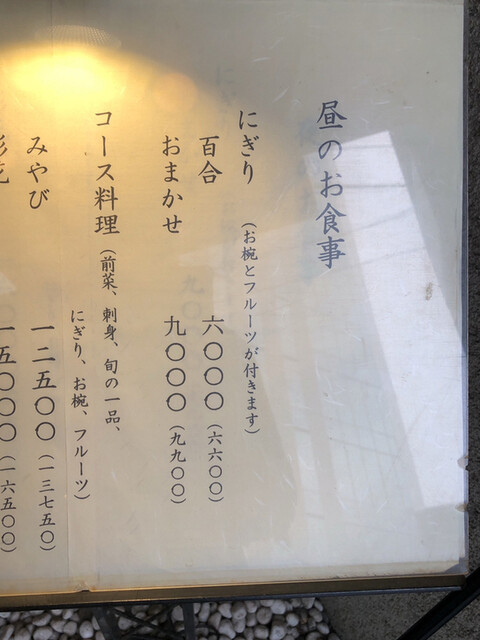 昼のお食事
にぎり（お椀とフルーツが付きます）
百合 六〇〇〇（六六〇〇）
おまかせ 九〇〇〇（九九〇〇）
コース料理（前菜、刺身、旬の一品、
にぎり、お椀、フルーツ）
みやび 一二五〇〇（一三七五〇）
一五〇〇〇（一六五〇〇）